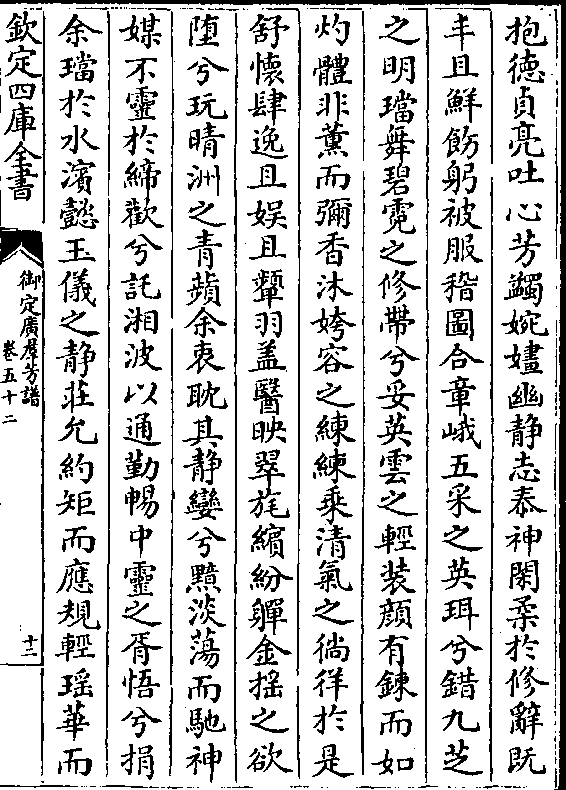 抱德貞亮吐心芳蠲婉嫿幽静志泰神閑柔於修辭旣
丰且鮮飭躬被服稽圖合章峨五采之英珥兮錯九芝
之明璫舞碧霓之修帶兮妥英雲之輕裝顔有鍊而如
灼體非薰而彌香沐姱容之練練乘清氣之徜徉於是
舒懷肆逸且娱且顰羽盖翳映翠旄繽紛軃金揺之欲
墮兮玩晴洲之青蘋余衷耽其静孌兮黯淡蕩而馳神
媒不靈於締歡兮託湘波以通勤暢中靈之胥悟兮捐
余璫於水濱懿玉儀之静莊允約矩而應規輕瑶華而
欽定四庫全書
御定廣羣芳譜
卷五十二
十二